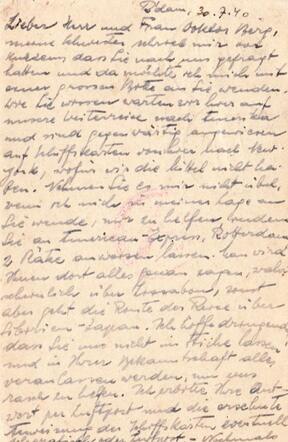 R'dam, 30.7.40.
Lieber Herr und Frau Doktor Berg,
meine Schwester schrieb mir vor
kurzem, dass Sie nach uns gefragt
haben und da möchte ich mich mit
einer grossen Bitte an Sie wenden.
Wie Sie wissen warten wir hier auf
unsere Weiterreise nach Amerika
und sind gegenwärtig angewiesen
auf Schiffskarten von hier nach New-
york, wofür wir die Mittel nicht ha-
ben. Nehmen Sie es mir nicht übel,
wenn ich mich in meiner Lage an
Sie wende, mir zu helfen indem
Sie an American-Express, Rotterdam
2 Plätze anweisen lassen. Man wird
Ihnen dort alles genau sagen, wahr-
scheinlich über Lissabon, sonst
aber geht die Route der Reise über
Sibirien-Japan. Ich hoffe dringend,
dass Sie uns nicht im Stiche lassen
und in Ihrer Bekanntschaft alles
veranlassen werden, um uns
rasch zu helfen. Ich erbitte Ihre Ant-
wort per Luftpost und die ersehnte
Anweisung der Schiffskarten eventuell